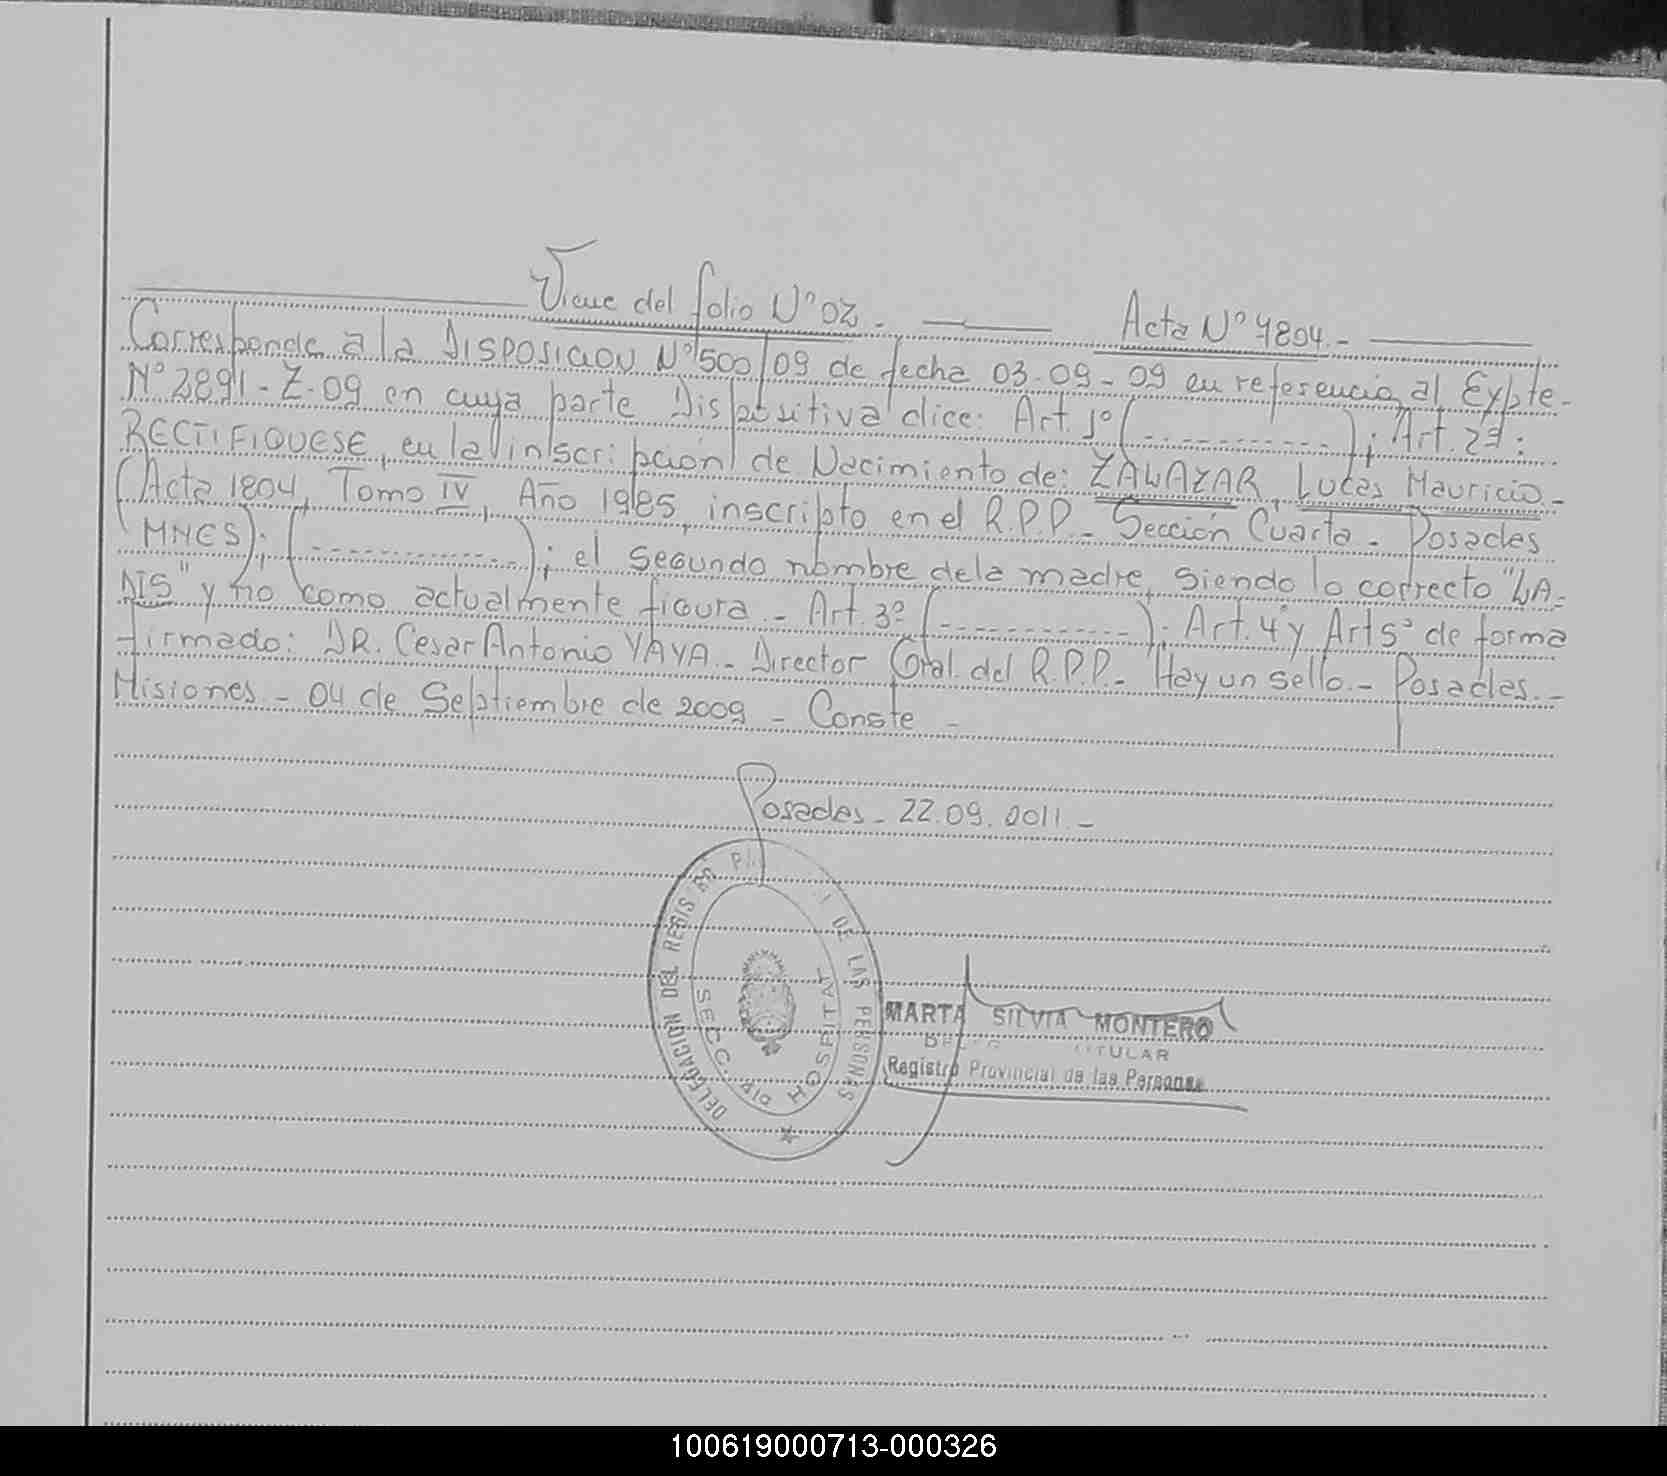 Viene del folio N° 02.- Acta N° 1804.-
Corresponde a la DISPOSICION N° 500/09 de fecha 03-09-09 en referencia al Expte-
N° 2891-Z-09 en cuya parte Dispositiva dice: Art. 1° (------------); Art. 2°:
RECTIFIQUESE, en la inscripción de Nacimiento de: ZALAZAR, Lucas Mauricio-
(Acta 1804, Tomo IV, Año 1985, inscripto en el R.P.P.- Sección Cuarta- Posadas
MNES); (------------); el segundo nombre de la madre, siendo lo correcto "LA-
DIS" y no como actualmente figura.- Art. 3° (------------); Art. 4° y Art 5° de forma
firmado: DR. Cesar Antonio YAYA.- Director Gral. del R.P.P.- Hay un sello.- Posadas.-
Misiones.- 04 de Septiembre de 2009 - Conste -
Posadas- 22.09.2011.-
DELEGACION DEL REGISTRO DE LAS PERSONAS
SECC. HOSPITAL
MARTA SILVIA MONTERO
TITULAR
Registro Provincial de las Personas
100619000713-000326